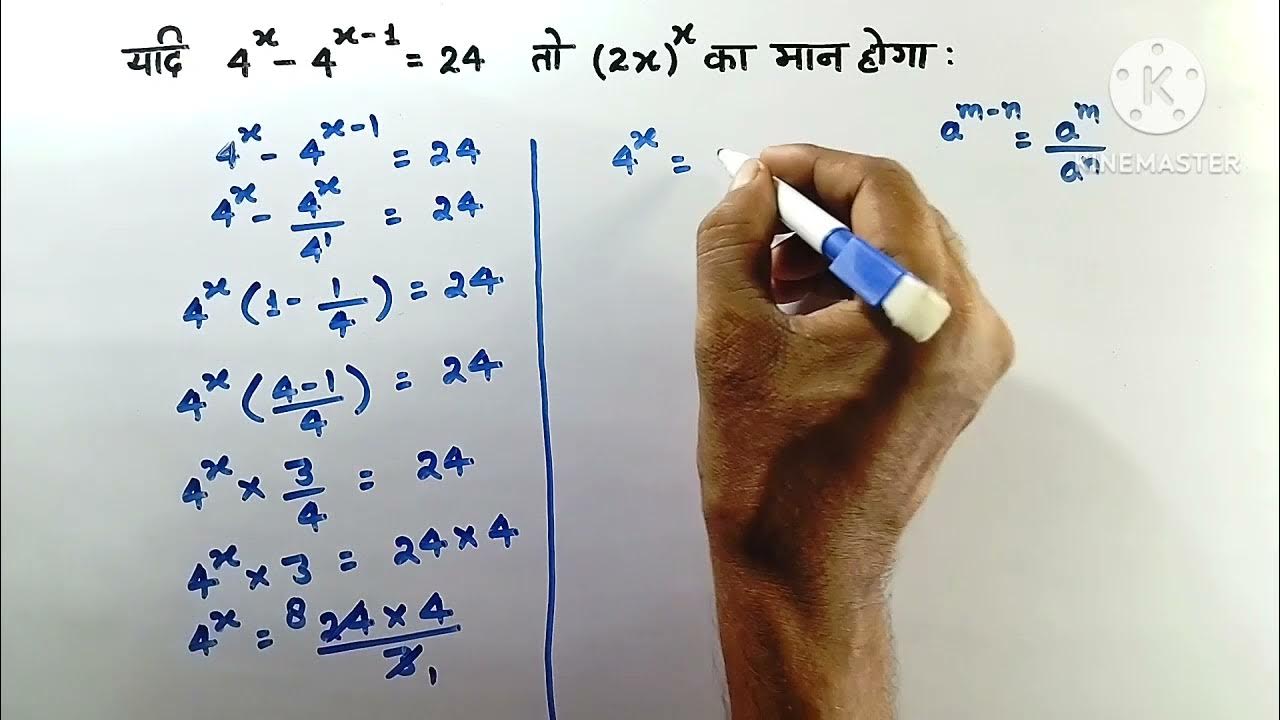 यदि 4^x - 4^(x-1) = 24 तो (2x)^x का मान होगा :
4^x - 4^(x-1) = 24
4^x - 4^x/4^1 = 24
4^x (1 - 1/4) = 24
4^x ((4-1)/4) = 24
4^x × 3/4 = 24
4^x × 3 = 24 × 4
4^x = 8 24 × 4/3 1
4^x =
a^(m-n) = a^m/a^n
K
KINEMASTER